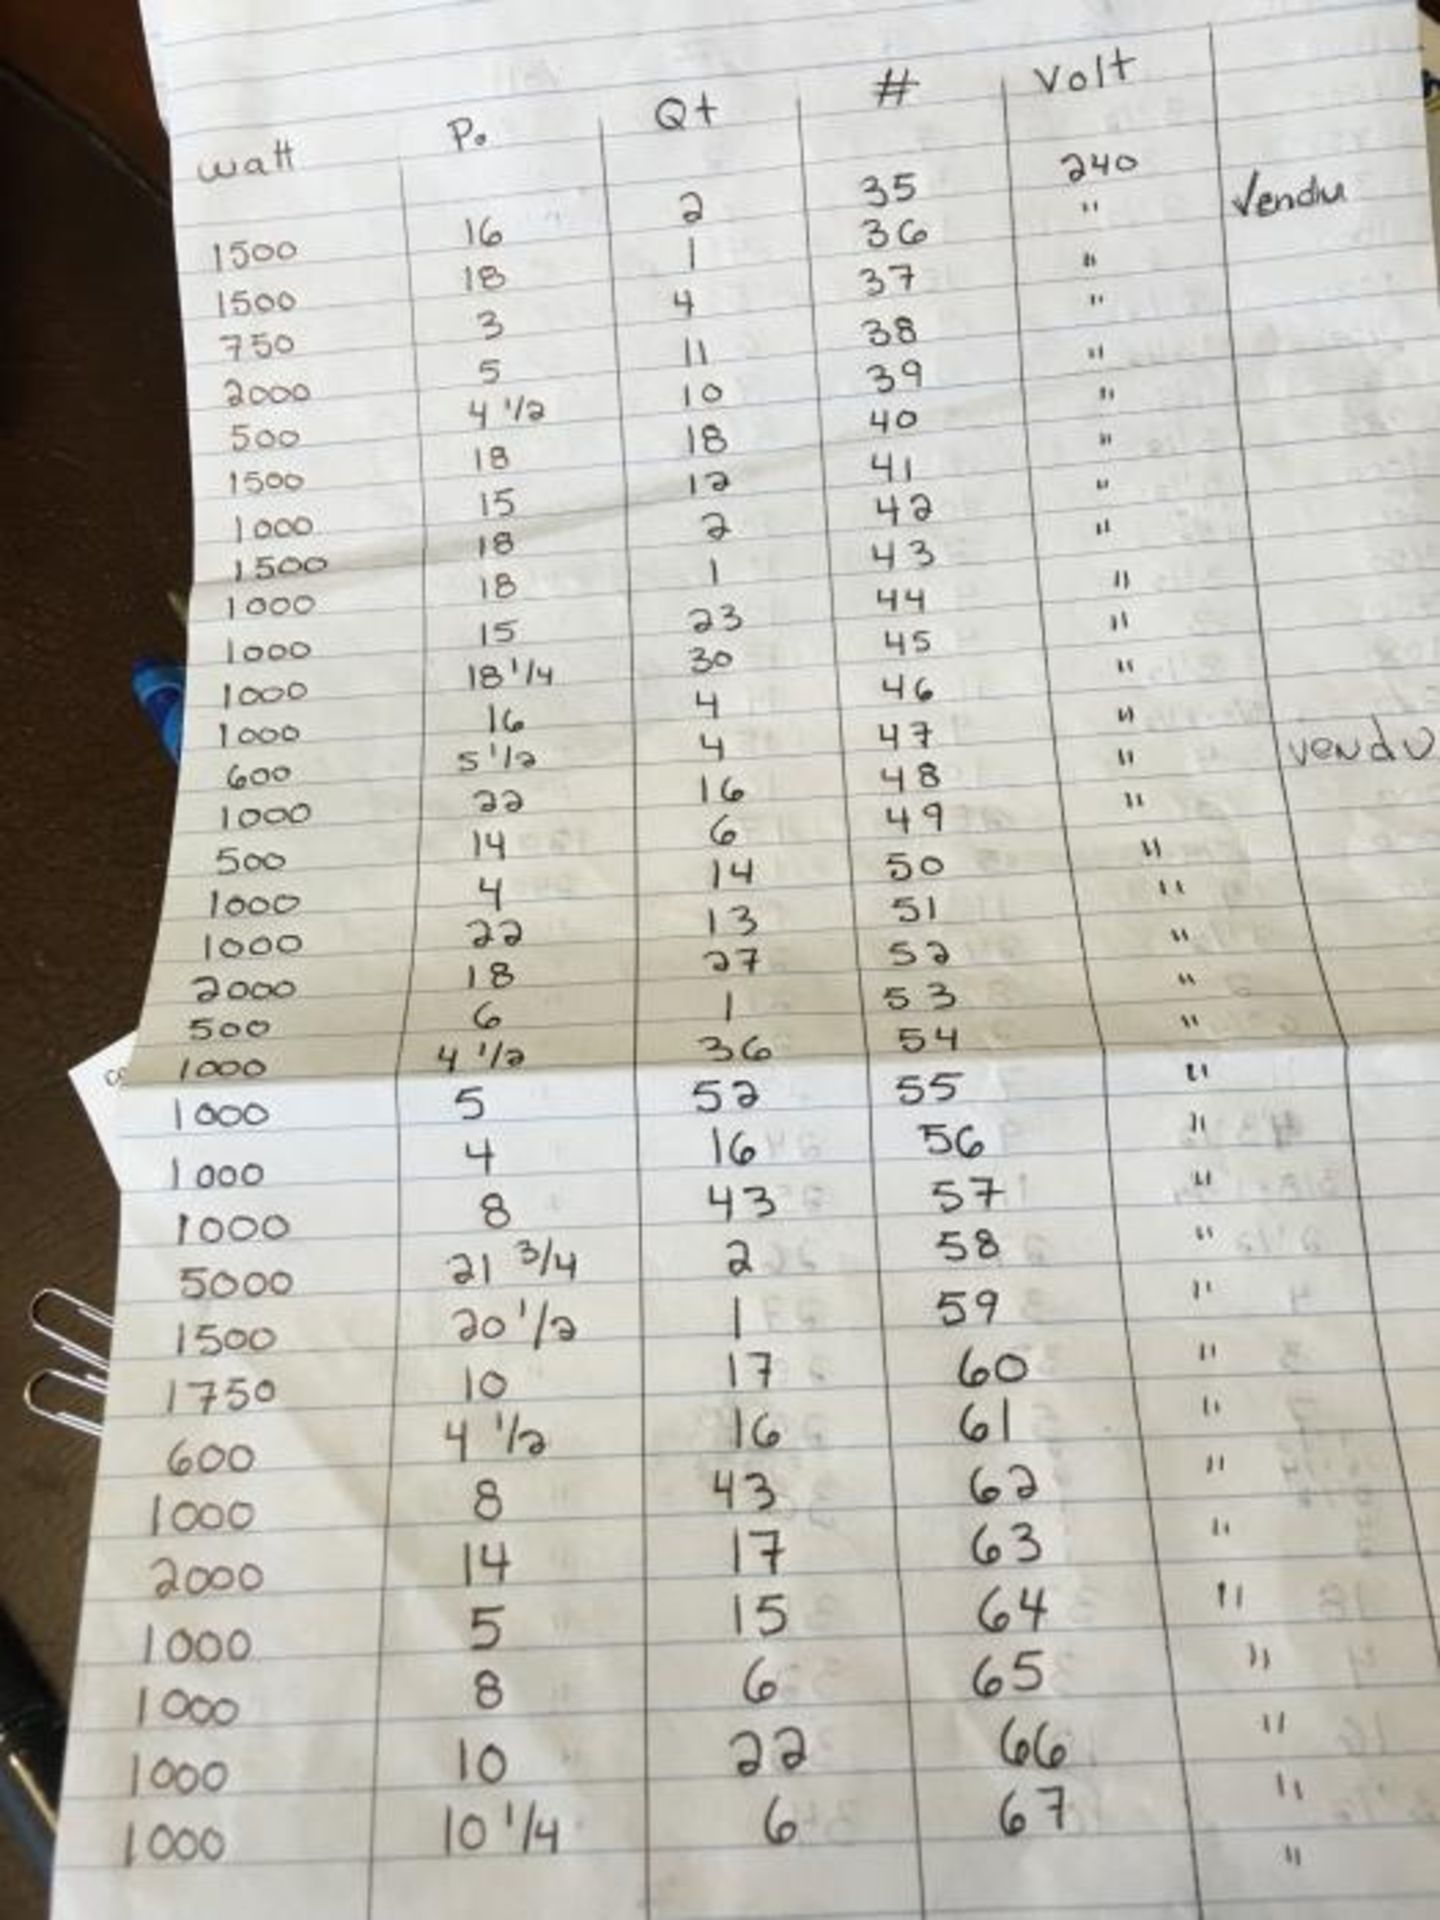 watt Po Qt # Volt
1500 16 2 35 240
1500 18 1 36 " Vendu
750 3 4 37 "
2000 5 11 38 "
500 4 1/2 10 39 "
1500 18 18 40 "
1000 15 12 41 "
1500 18 2 42 "
1000 18 1 43 "
1000 15 23 44 "
1000 18 1/4 30 45 "
1000 16 4 46 "
600 5 1/2 4 47 "
1000 22 16 48 " vendu
500 14 6 49 "
1000 4 14 50 "
1000 22 13 51 "
2000 18 27 52 "
500 6 1 53 "
1000 4 1/2 36 54 "
1000 5 52 55 "
1000 4 16 56 "
1000 8 43 57 "
5000 21 3/4 2 58 "
1500 20 1/2 1 59 "
1750 10 17 60 "
600 4 1/2 16 61 "
1000 8 43 62 "
2000 14 17 63 "
1000 5 15 64 "
1000 8 6 65 "
1000 10 22 66 "
1000 10 1/4 6 67 "